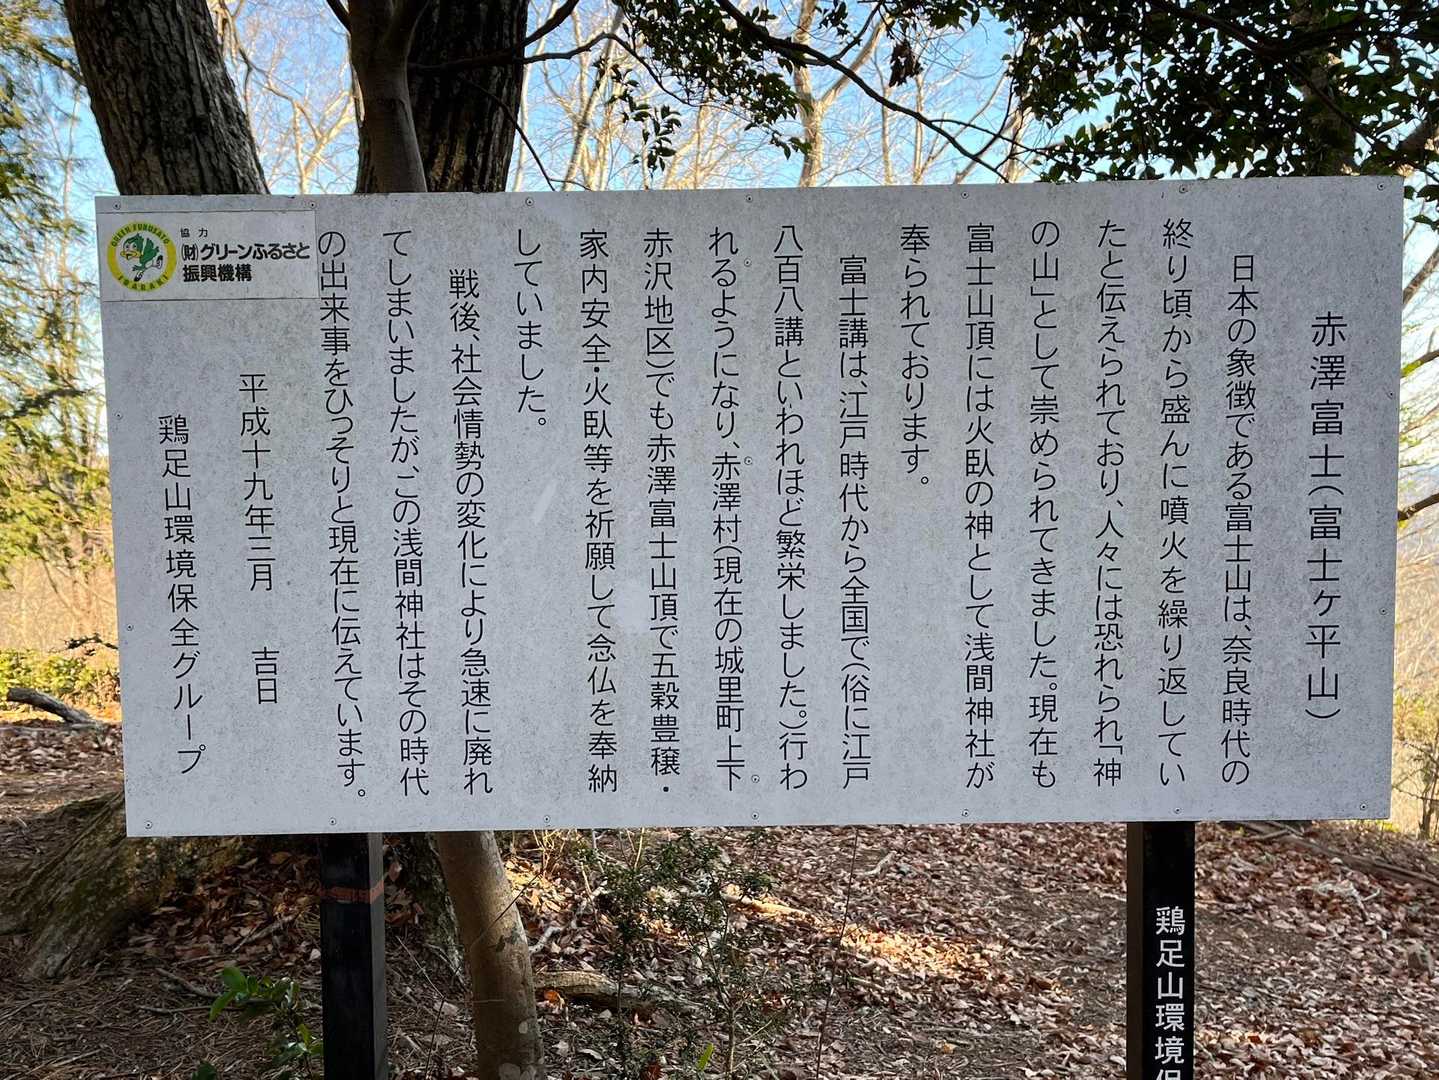 赤澤富士（富士ヶ平山）
日本の象徴である富士山は、奈良時代の
終り頃から盛んに噴火を繰り返してい
たと伝えられており、人々には恐れられ「神
の山」として崇められてきました。現在も
富士山頂には火臥の神として浅間神社が
奉られております。
富士講は、江戸時代から全国で（俗に江戸
八百八講といわれほど繁栄しました。）行わ
れるようになり、赤澤村（現在の城里町上下
赤沢地区）でも赤澤富士山頂で五穀豊穣・
家内安全・火臥等を祈願して念仏を奉納
していました。
戦後、社会情勢の変化により急速に廃れ
てしまいましたが、この浅間神社はその時代
の出来事をひっそりと現在に伝えています。
平成十九年三月 吉日
鶏足山環境保全グループ
GREEN FURUSATO
IBARAKI
協力
(財)グリーンふるさと
振興機構
鶏足山環境保